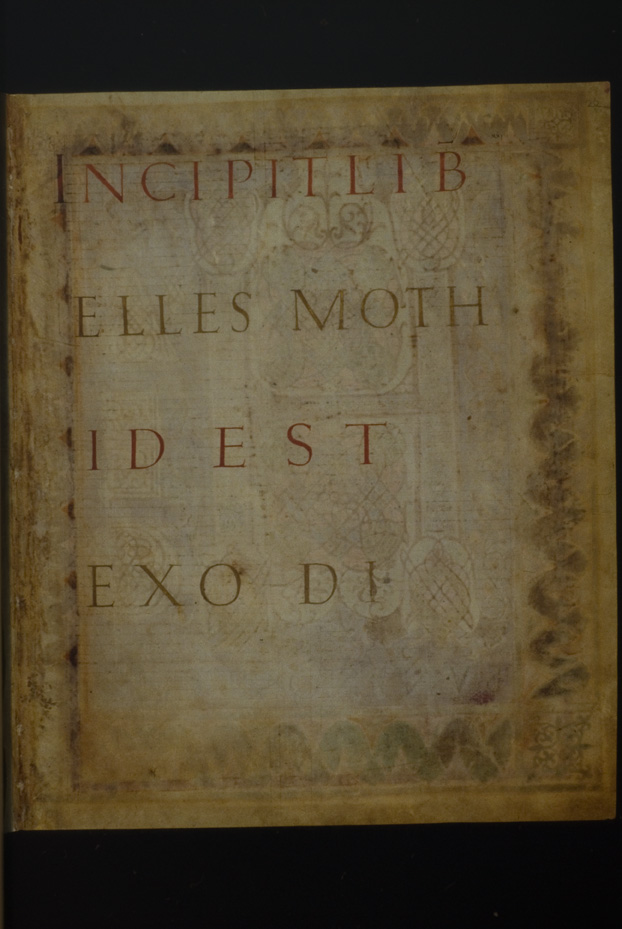 INCIPIT LIB̅
ELLES MOTH
ID EST
EXODI